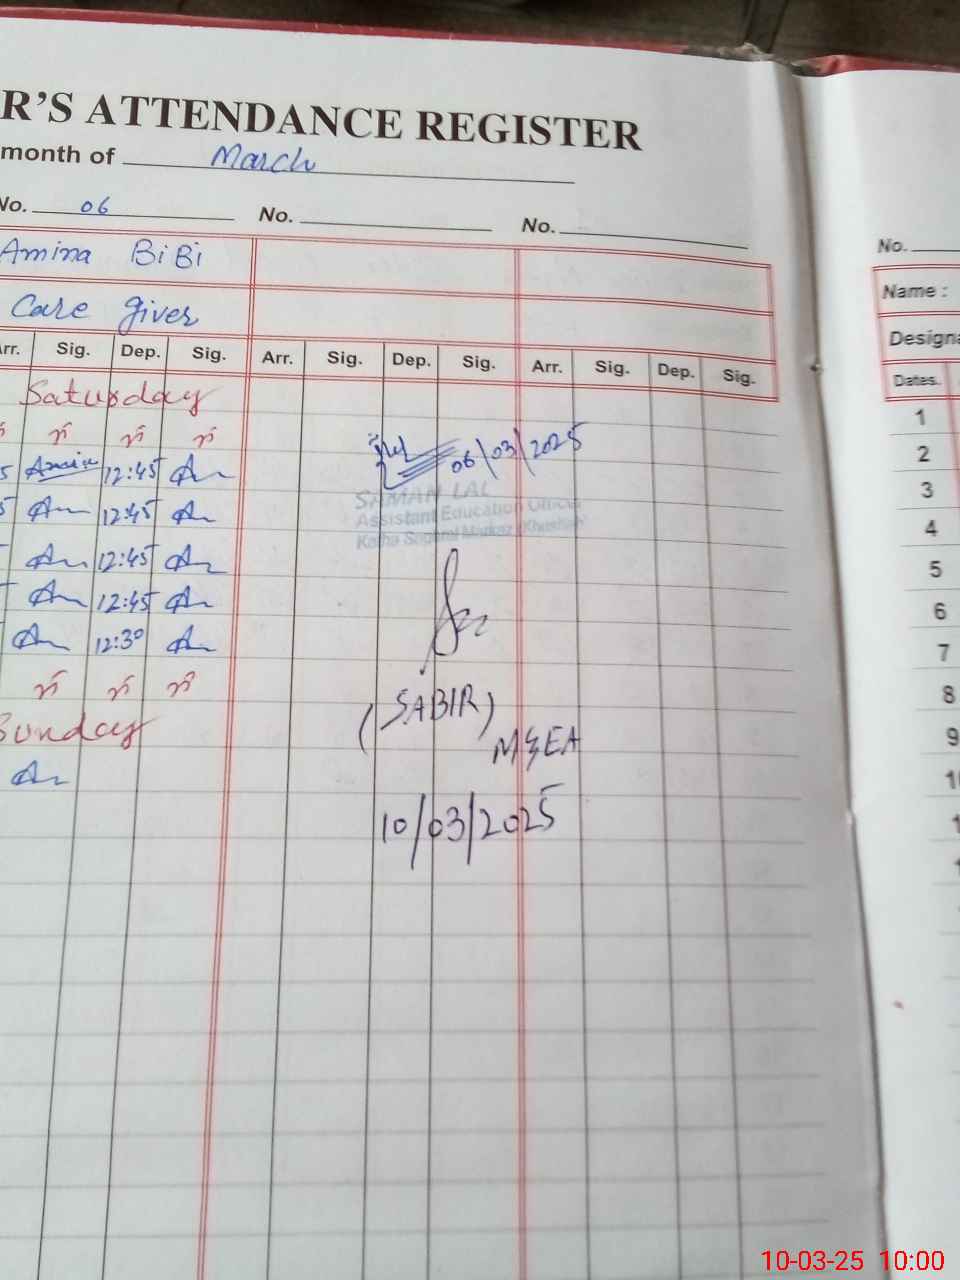 R'S ATTENDANCE REGISTER
month of March
No. 06 No. No.
Amina BiBi
Care giver
Arr. Sig. Dep. Sig. Arr. Sig. Dep. Sig. Arr. Sig. Dep. Sig.
Saturday
12:45
06/03/2025
12:45
SAMAN LAL
Assistant Education Officer
12:45
12:45
12:30
(SABIR)
Sunday
MEA
10/03/2025
No.
Name :
Designa
Dates.
1
2
3
4
5
6
7
8
9
10-03-25 10:00